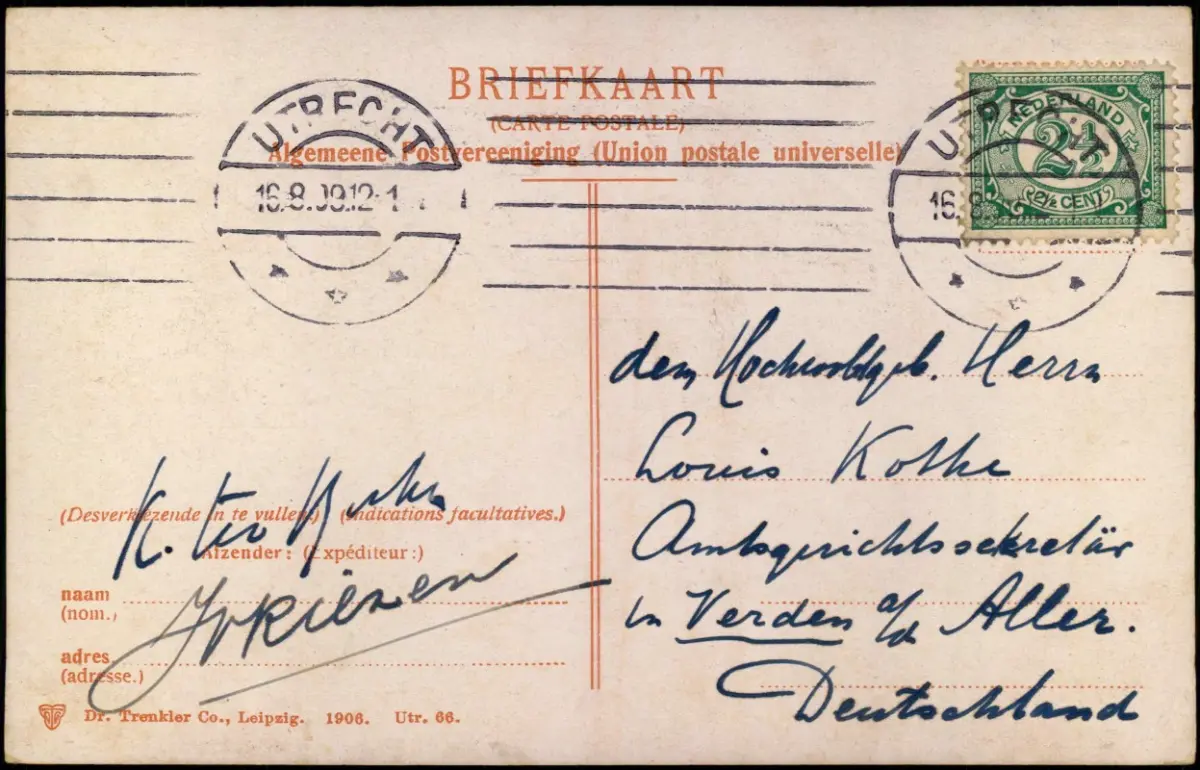 BRIEFKAART
(CARTE POSTALE)
Algemeene Postvereeniging (Union postale universelle)
UTRECHT
16.8.09.12-1
NEDERLAND
2½
(2½ CENT)
UTRECHT
16.8
dem Hochwohlgeb. Herrn
Louis Kothe
Amtsgerichtssekretär
in Verden a/d Aller.
Deutschland
K. ter
(Desverkiezende in te vullen.) (Indications facultatives.)
Afzender: (Expéditeur:)
naam
(nom.,
adres
(adresse.)
Dr. Trenkler Co., Leipzig. 1906. Utr. 66.